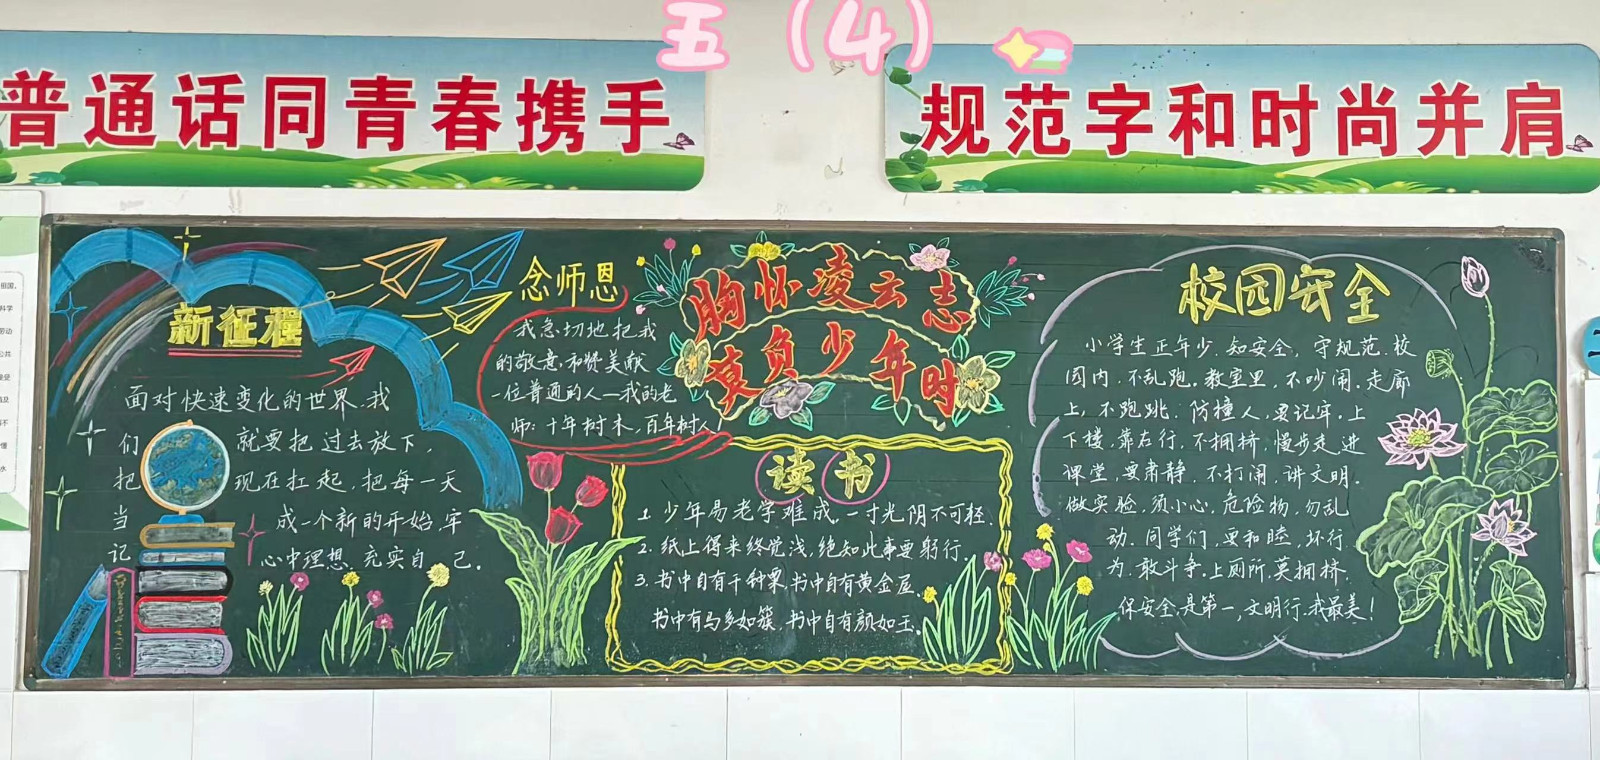 五（4）
普通话同青春携手
规范字和时尚并肩
新征程
面对快速变化的世界.我
们 就要把过去放下，
把 现在扛起，把每一天
当 成一个新的开始,牢
记 心中理想.充实自己。
念师恩
我急切地把我
的敬意和赞美献
一位普通的人—我的老
师：十年树木，百年树人！
胸怀凌云志
莫负少年时
读书
1. 少年易老学难成，一寸光阴不可轻.
2. 纸上得来终觉浅，绝知此事要躬行.
3. 书中自有千钟粟,书中自有黄金屋.
书中有马多如簇.书中自有颜如玉。
校园安全
小学生正年少.知安全，守规范.校
园内.不乱跑。教室里，不吵闹.走廊
上，不跑跳.防撞人,要记牢.上
下楼,靠右行,不拥挤,慢步走.进
课堂,要肃静.不打闹.讲文明.
做实验,须小心.危险物,勿乱
动.同学们,要和睦,坏行
为.敢斗争.上厕所,莫拥挤.
保安全.是第一,文明行.我最美！